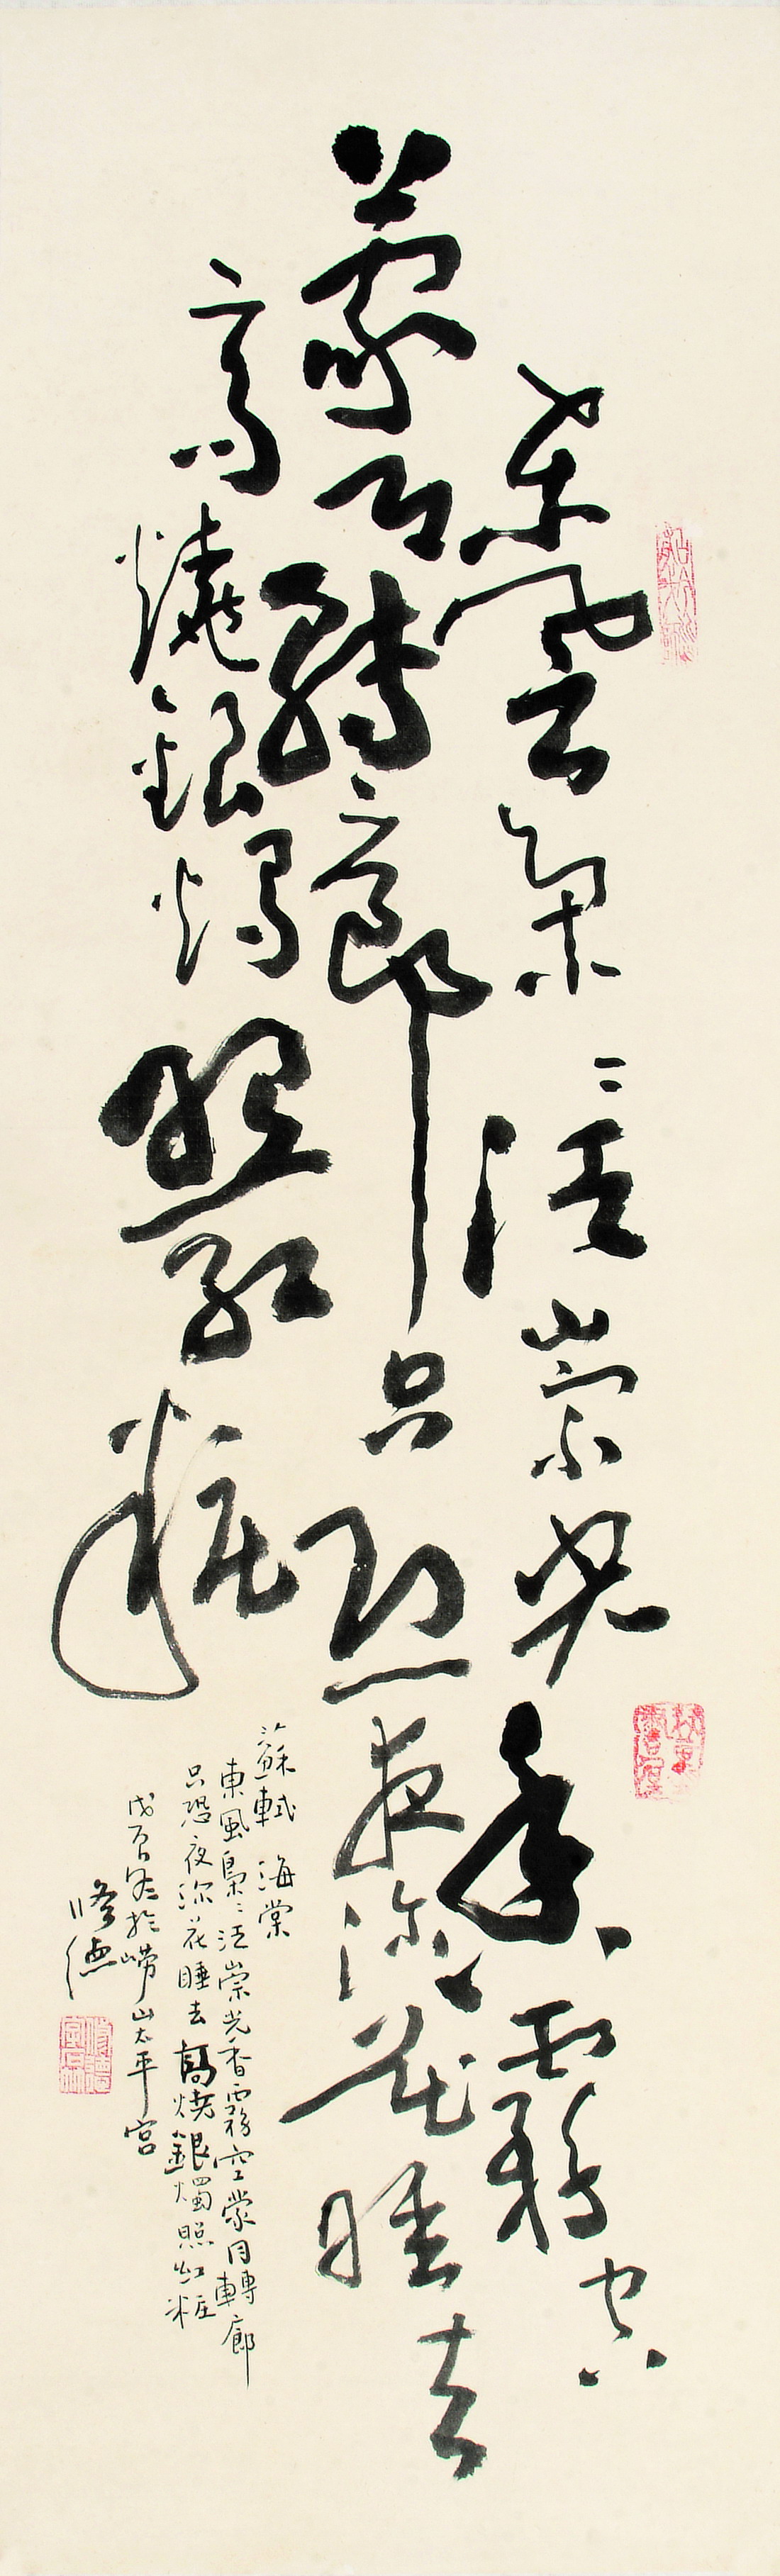 東風裊〻泛崇光香霧空
蒙月轉廊只恐夜深花睡去
高燒銀燭照紅粧
蘇軾 海棠
東風裊〻泛崇光香霧空蒙月轉廊
只恐夜深花睡去高燒銀燭照紅粧
戊寅冬於嶗山太平宮
修德